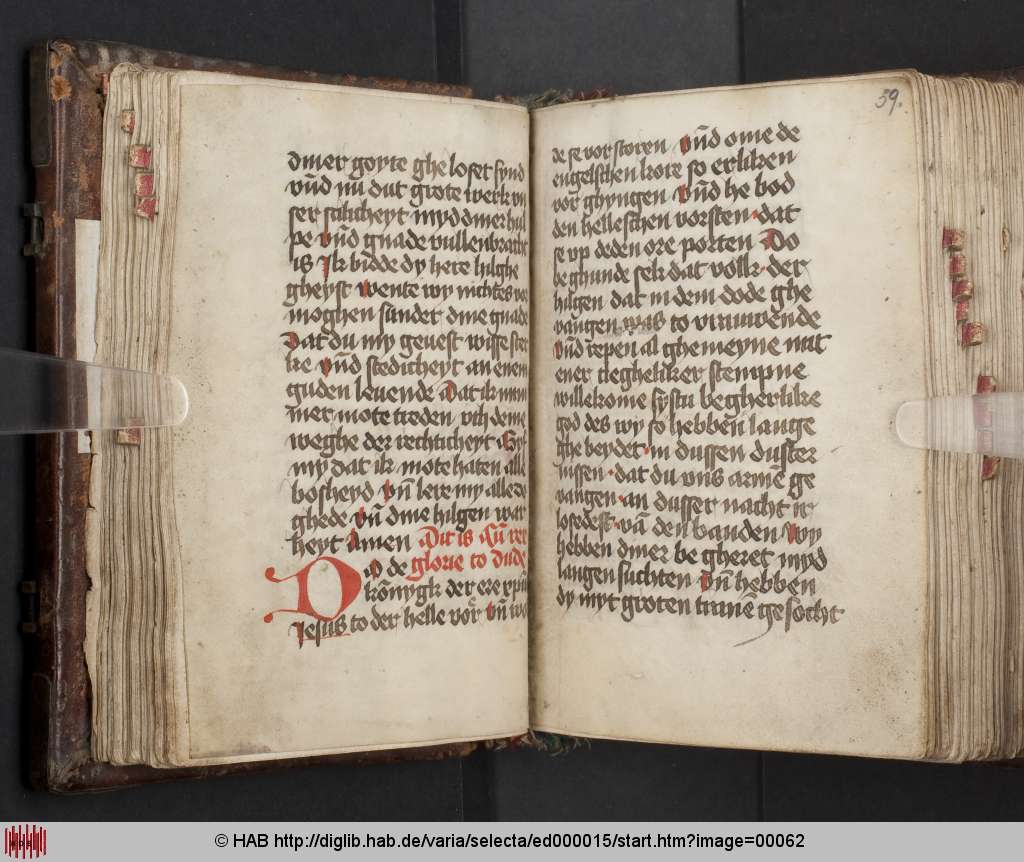 diner goyte ghe loset synd
vnd nu dat grote werk vn
ser salicheyt myd diner hul
pe vnd gnade vullenbracht
is Ik bidde dy here hilghe
gheyst wente wy nichtes vor
moghen sunder dine gnade
Dat du my geuest wisse ster
ke vnd stedicheyt an enem
guden leuende Dat ik nũm
mer mote treden vth deme
weghe der rechticheyt Gif
my dat ik mote haten alle
bosheyd vñ lere my alle do
ghede vñ dine hilgen war
heyt Amen Dit is Cũ rex
Do de glorie to dude
kõnygk der ere xpũs
Jesus to der helle vor vñ wo
39.
de se vor storen vnd ome de
engelschen kore so erliken
vor ghyngen vnd he bod
den helleschen vorsten dat
se vp deden ore porten Do
be ghunde sek dat volk der
hilgen dat in dem dode ghe
vangen was to vrauwende
vnd repen al ghemeyne mit
ener cleghelker stempne
willekome systu begherlike
god des wy so hebben lange
ghe beydet in dussen duster
nissen dat du vns armẽ ge
vangen an dusser nacht ir
losedest vã den banden Wy
hebben diner be gheret myd
langen suchten vñ hebben
dy myt groten tranẽ gesocht
© HAB http://diglib.hab.de/varia/selecta/ed000015/start.htm?image=00062